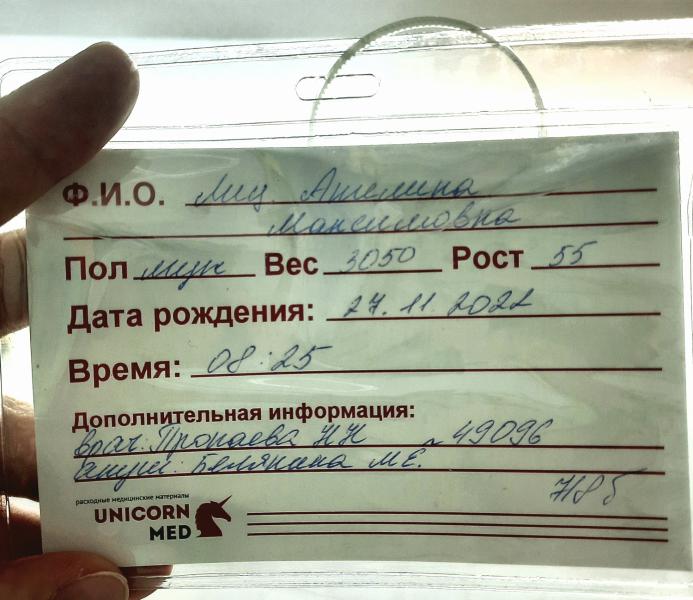 Ф.И.О. Лиц. Ангелина
Максимовна
Пол Вес 3050 Рост 55
Дата рождения: 27.11.2022
Время: 08:25
Дополнительная информация:
врач: Н Н 49096
акуш: Белякина М.Е.
расходные медицинские материалы
UNICORN
MED